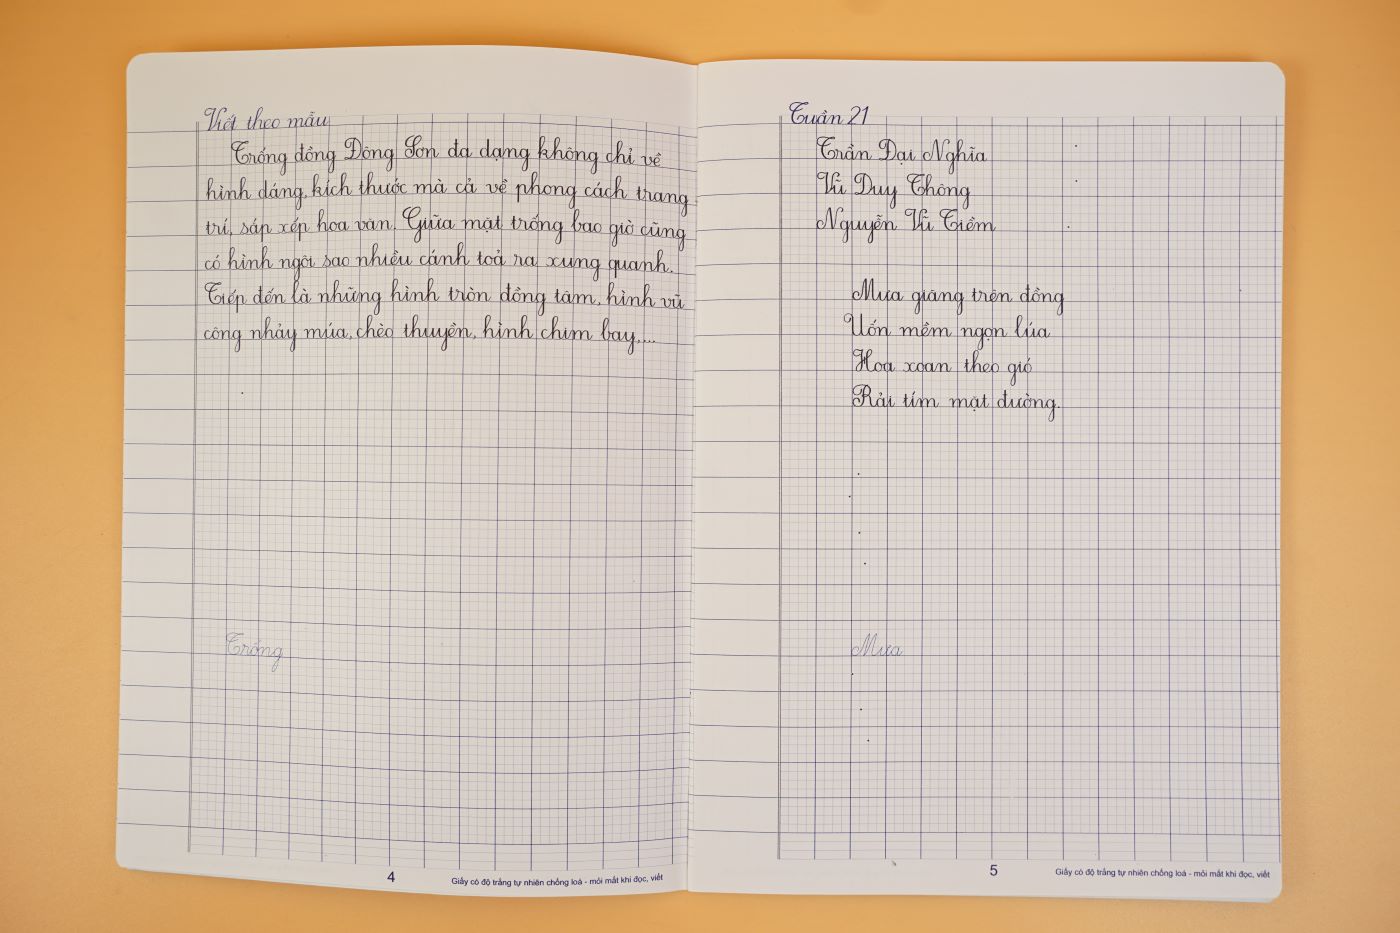 Viết theo mẫu
Trống đồng Đông Sơn đa dạng không chỉ về
hình dáng, kích thước mà cả về phong cách trang
trí, sắp xếp hoa văn. Giữa mặt trống bao giờ cũng
có hình ngôi sao nhiều cánh toả ra xung quanh.
Tiếp đến là những hình tròn đồng tâm, hình vũ
công nhảy múa, chèo thuyền, hình chim bay,...
Trống
4
Giấy có độ trắng tự nhiên chống loá - mỏi mắt khi đọc, viết
Tuần 21
Trần Đại Nghĩa
Vũ Duy Thông
Nguyễn Vũ Tiềm
Mưa giăng trên đồng
Uốn mềm ngọn lúa
Hoa xoan theo gió
Rải tím mặt đường.
Mưa
5
Giấy có độ trắng tự nhiên chống loá - mỏi mắt khi đọc, viết